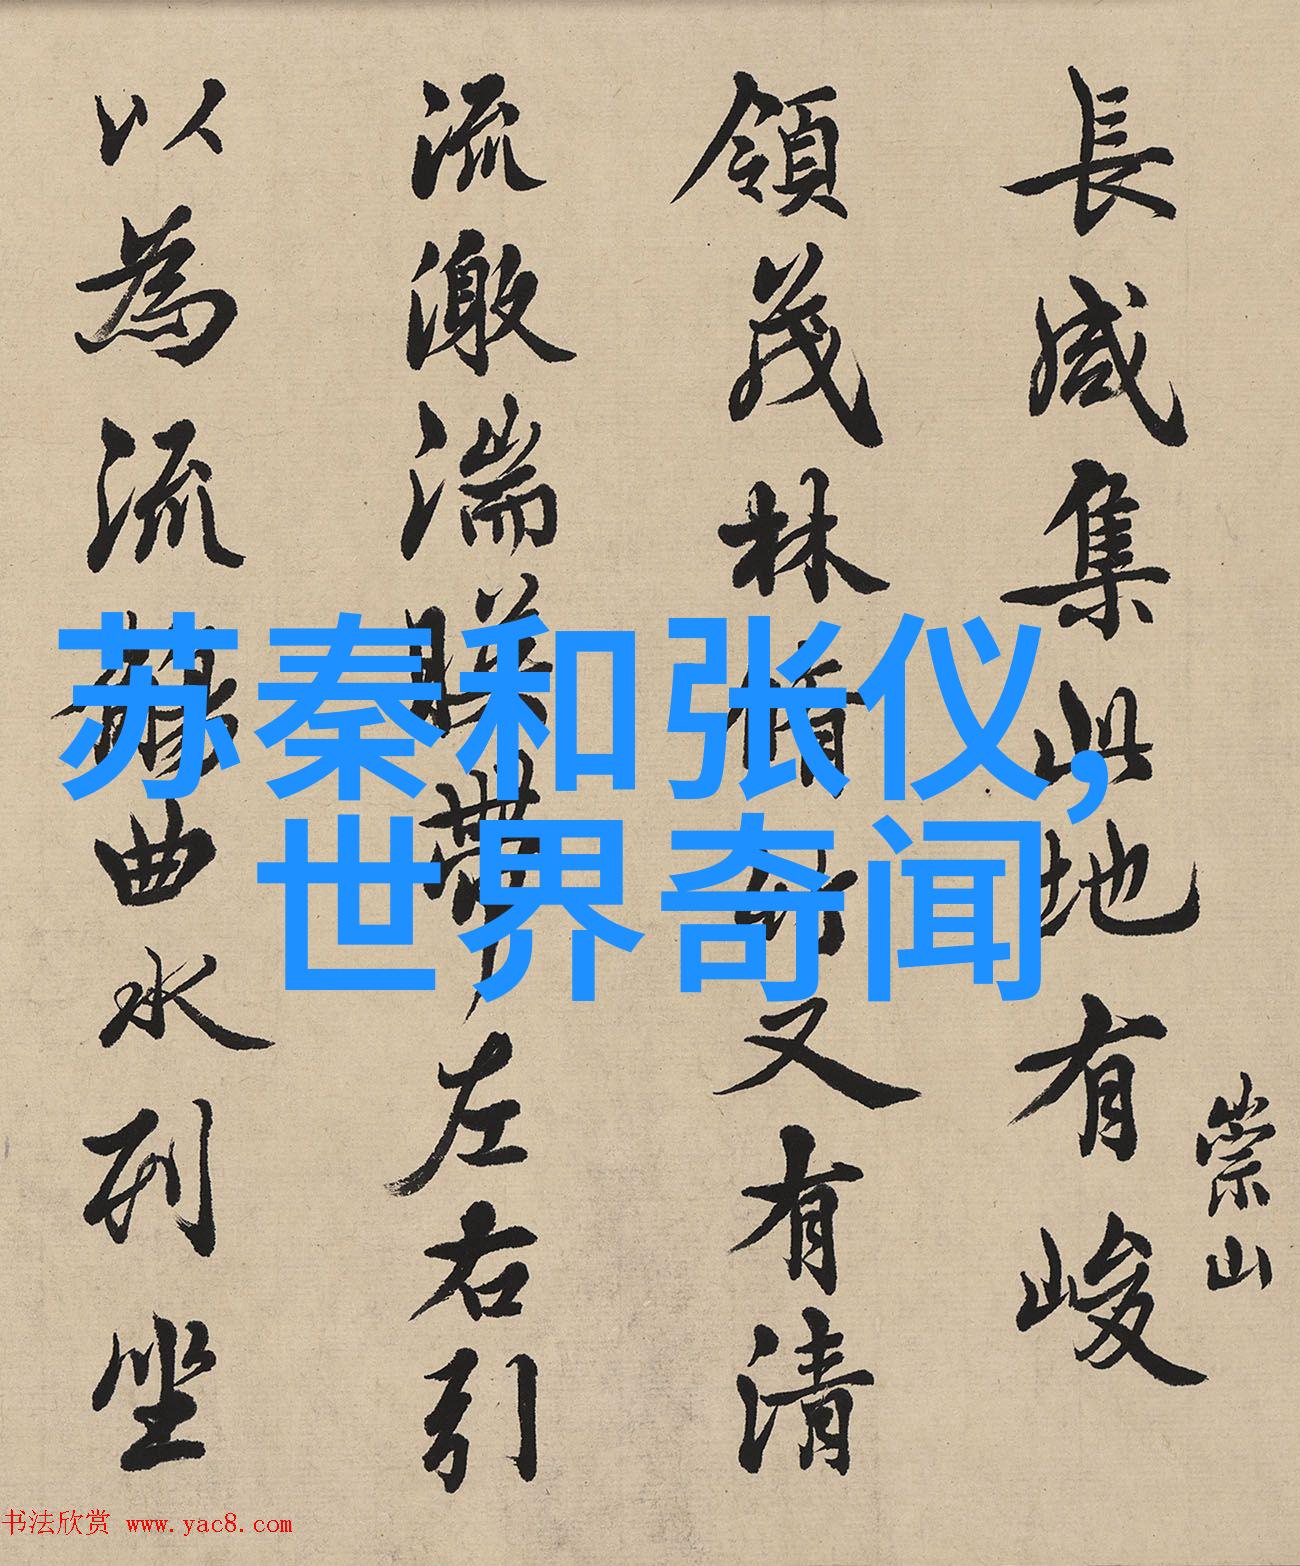 崇山
長咸集此地有峻
領茂林脩竹又有清
流激湍暎帶左右引
以為流觴曲水列坐
苏秦和张仪,
世界奇闻
书法欣赏 www.yac8.com